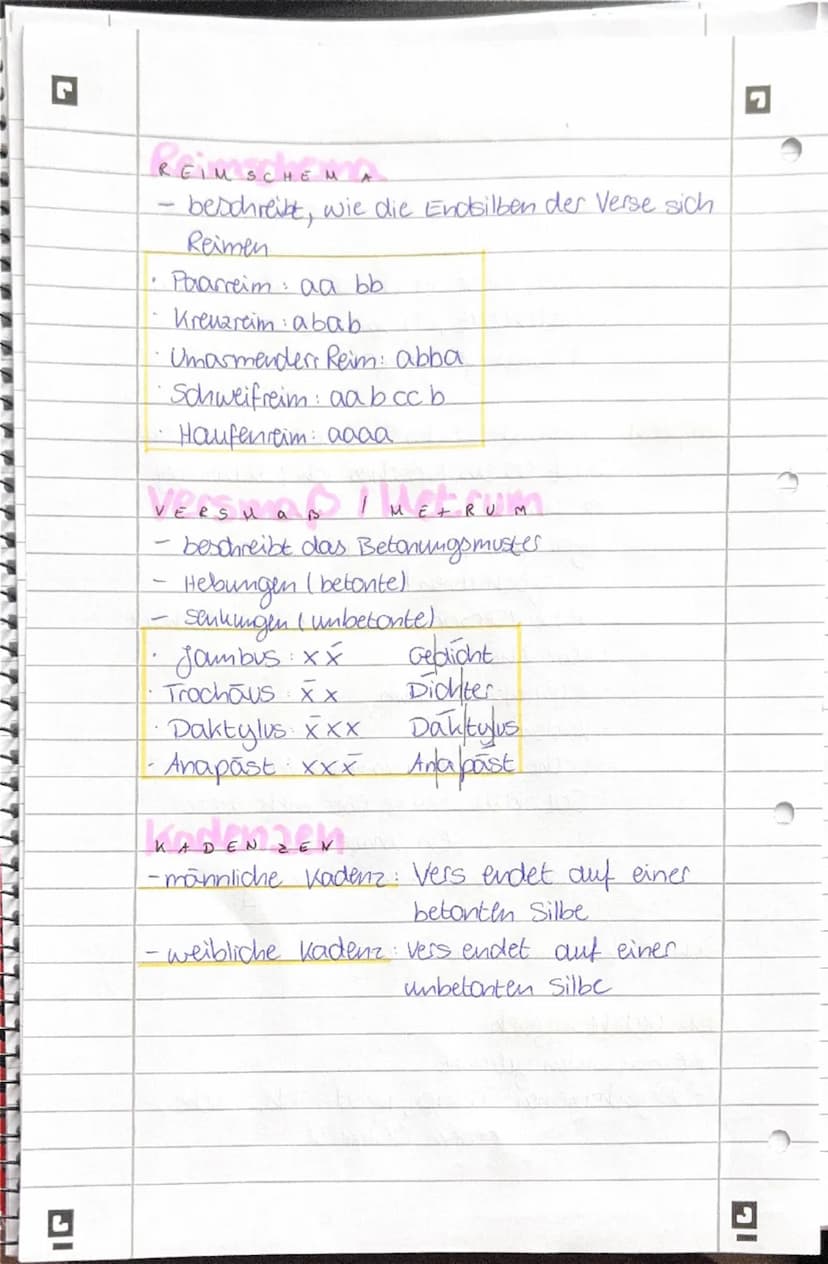 REIMSCHEMA
- beschreibt, wie die Endsilben der Verse sich
Reimen
· Paarreim: aa bb
· Kreuzreim: abab
· Umasmender Reim: abba
· Schweifreim: aabccb
· Haufenreim: aaaa
VERSMAß / METRUM
- beschreibt das Betonungsmuster
- Hebungen (betonte)
- Senkungen (unbetonte)
· Jambus: x x̄ Ge|dicht
· Trochäus: x̄ x Dich|ter
· Daktylus: x̄ x x Dak|ty|lus
· Anapäst: x x x̄ An|a|päst
KADENZEN
- männliche Kadenz: Vers endet auf einer
betonten Silbe
- weibliche Kadenz: Vers endet auf einer
unbetonten Silbe